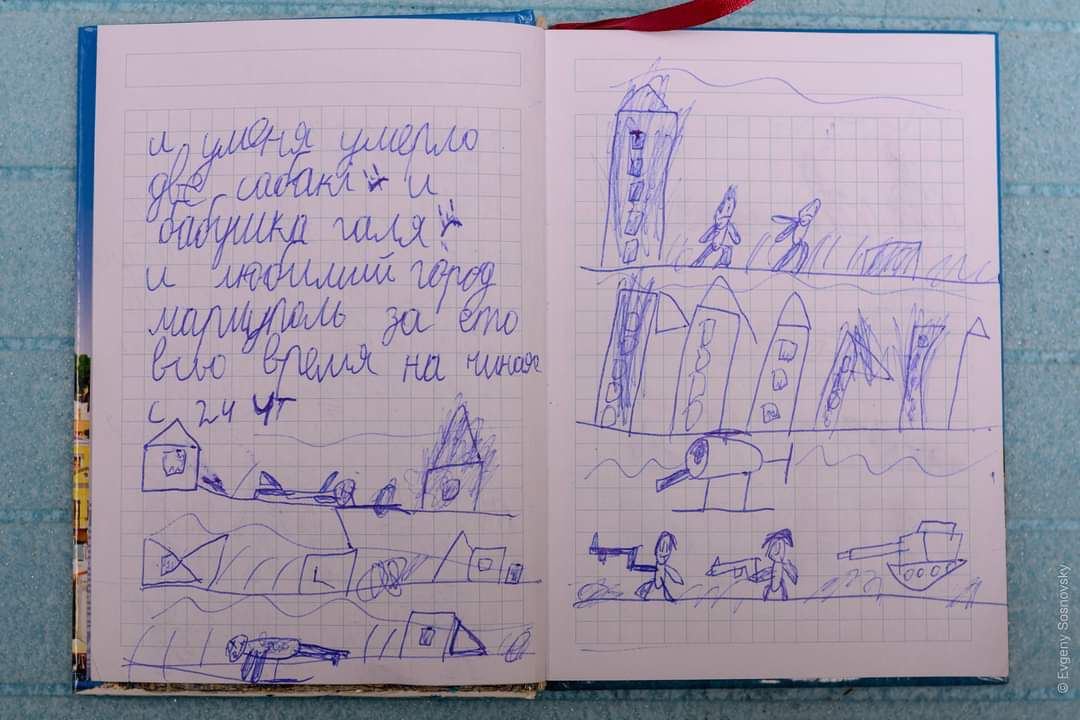 и уменя умерло
две сабакі и
бабушка галя
и любимий город
мариуполь за ето
всьо время на чиная
с 24 чт
© Evgeny Sosnovsky